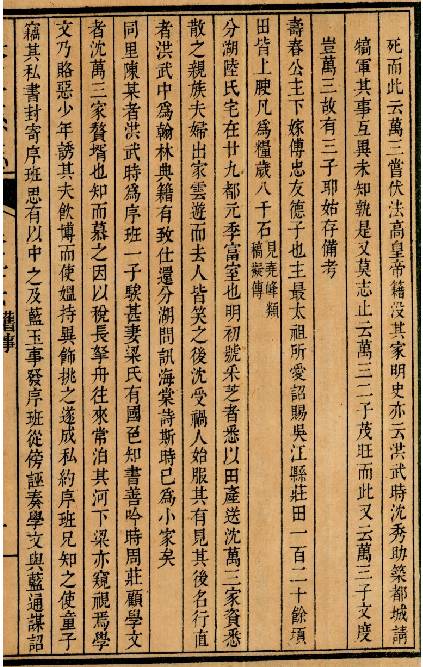 死而此云萬三嘗伏法高皇帝籍没其家明史亦云洪武時沈秀助築都城請
犒軍其事互異未知孰是又莫志止云萬三二子茂旺而此又云萬三子文度
豈萬三故有三子耶姑存備考
壽春公主下嫁傅忠友德子也主最太祖所愛詔賜吳江縣莊田一百二十餘頃
田皆上腴凡為糧歲八千石見堯峰類稿擬傳
分湖陸氏宅在廿九都元季富室也明初號釆芝者悉以田產送沈萬三家資悉
散之親族夫婦出家雲遊而去人皆笑之後沈受禍人始服其有見其後名行直
者洪武中為翰林典籍有致仕還分湖問訊海棠詩斯時已為小家矣
同里陳某者洪武時為序班一子騃甚妻梁氏有國色知書善吟時周莊顧學文
者沈萬三家贅壻也知而慕之因以稅長拏舟往來常泊其河下梁亦窺視焉學
文乃賂惡少年誘其夫飲博而使媼持異飾挑之遂成私約序班兄知之使童子
竊其私書封寄序班思有以中之及藍玉事發序班從傍誣奏學文與藍通謀詔
舊事